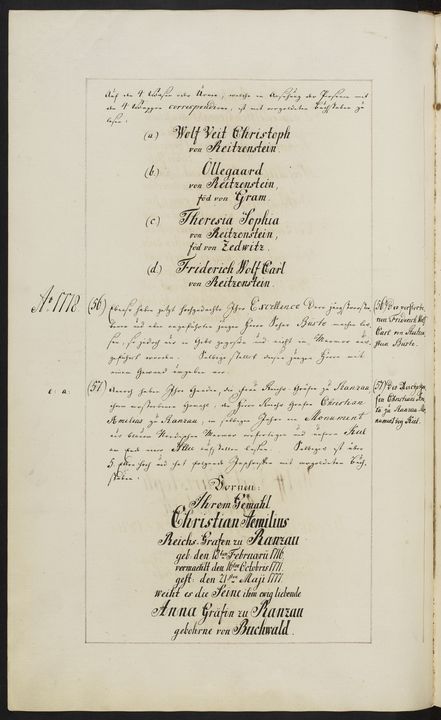 Auf den 4 Urnen oder Urne, welche in Ansehung der Personen mit
den 4 Wappen correspondiren, ist mit vergoldeten Buchstaben zu
lesen:
(a) Wolf Veit Christoph
von Reitzenstein.
(b.) Ollegaard
von Reitzenstein,
föd von Gram.
(c) Theresia Sophia
von Reitzenstein,
föd von Zedwitz.
(d) Friderich Wolf Carl
von Reitzenstein.
Ao 1778 (56) haben jetzt hochgedachte Ihro Excellence Dero
und oben angeführten jungen Herrn Sohn Büste machen las-
sen, so jedoch nur in Gyps gegossen und nicht in Marmor aus-
geführt worden. Selbige stellet diesen jungen Herrn mit
einem Gewand umgeben vor.
56) Des verstorbe-
nen Friderich Wolf
Carl von Reitzen-
stein Büste.
e. a. (57) Ihro Gnaden, die Frau Reichs-Gräfin zu Ranzau,
ihrem verstorbenen Gemahl, des Herrn Reichs Grafen Christian
Æmilius zu Ranzau, in selbigem Jahre ein Monument
aus Norwegischen Marmor verfertigen und
aufstellen lassen. Selbiges ist über
5 Ellen hoch und hat folgende Inscription mit vergoldeten Buch-
staben:
57) Des Reichsgra-
fen Christian Æmi-
lii zu Ranzau Mo-
nument
Vornen:
Ihrem Gemahl
Christian Aemilius
Reichs-Grafen zu Ranzau
geb. den 12ten Februarii 1716.
vermählt den 16ten Octobris 1771.
gest: den 21sten Maji 1777.
weiht es die Seine ihm ewig liebende
Anna Gräfin zu Ranzau
gebohrne von Buchwald.